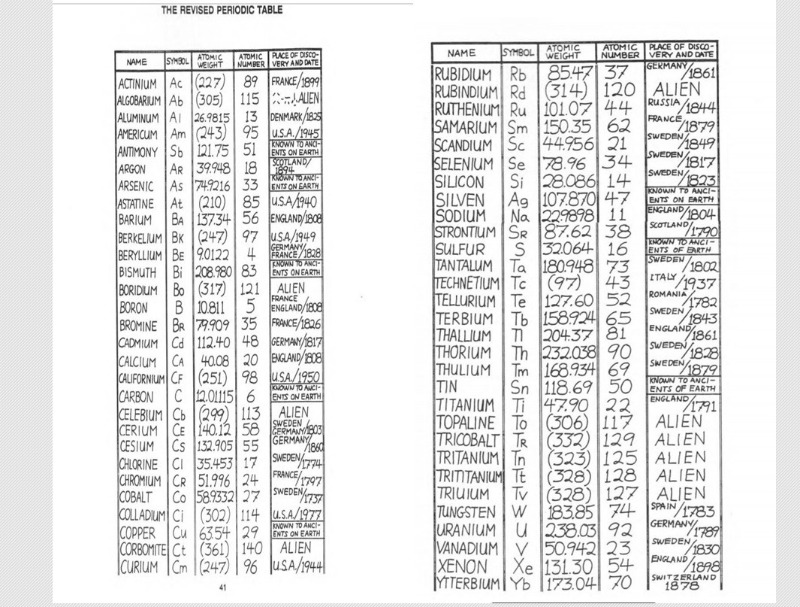 THE REVISED PERIODIC TABLE
NAME SYMBOL ATOMIC WEIGHT ATOMIC NUMBER PLACE OF DISCO- VERY AND DATE
ACTINIUM Ac (227) 89 FRANCE/1899
ALGOBARIUM Ab (305) 115 ALIEN
ALUMINUM Al 26.9815 13 DENMARK/1825
AMERICUM Am (243) 95 U.S.A./1945
ANTIMONY Sb 121.75 51 KNOWN TO ANCI- ENTS ON EARTH
ARGON AR 39.948 18 SCOTLAND/ 1894
ARSENIC As 74.9216 33 KNOWN TO ANCI- ENTS ON EARTH
ASTATINE At (210) 85 U.S.A/1940
BARIUM BA 137.34 56 ENGLAND/1808
BERKELIUM BK (247) 97 U.S.A/1949
BERYLLIUM BE 9.0122 4 GERMANY/ FRANCE/1828
BISMUTH Bi 208.980 83 KNOWN TO ANCI- ENTS ON EARTH
BORIDIUM Bo (317) 121 ALIEN
BORON B 10.811 5 FRANCE ENGLAND/1808
BROMINE BR 79.909 35 FRANCE/1826
CADMIUM Cd 112.40 48 GERMANY/1817
CALCIUM CA 40.08 20 ENGLAND/1808
CALIFORNIUM CF (251) 98 U.S.A./1950
CARBON C 12.01115 6 KNOWN TO ANCI- ENTS ON EARTH
CELEBIUM Cb (299) 113 ALIEN
CERIUM CE 140.12 58 SWEDEN GERMANY/1803
CESIUM Cs 132.905 55 GERMANY/1860
CHLORINE Cl 35.453 17 SWEDEN/1774
CHROMIUM CR 51.996 24 FRANCE/1797
COBALT Co 58.9332 27 SWEDEN/1737
COLLADIUM Ci (302) 114 U.S.A./1977
COPPER Cu 63.54 29 KNOWN TO ANCI- ENTS ON EARTH
CORBOMITE Ct (361) 140 ALIEN
CURIUM Cm (247) 96 U.S.A./1944
41
NAME SYMBOL ATOMIC WEIGHT ATOMIC NUMBER PLACE OF DISCO- VERY AND DATE
RUBIDIUM Rb 85.47 37 GERMANY/1861
RUBINDIUM Rd (314) 120 ALIEN
RUTHENIUM Ru 101.07 44 RUSSIA/1844
SAMARIUM Sm 150.35 62 FRANCE/1879
SCANDIUM Sc 44.956 21 SWEDEN/1849
SELENIUM Se 78.96 34 SWEDEN/1817
SILICON Si 28.086 14 SWEDEN/1823
SILVEN Ag 107.870 47 KNOWN TO ANCI- ENTS ON EARTH
SODIUM Na 22.9898 11 ENGLAND/1804
STRONTIUM SR 87.62 38 SCOTLAND/1790
SULFUR S 32.064 16 KNOWN TO ANCI- ENTS OF EARTH
TANTALUM Ta 180.948 73 SWEDEN/1802
TECHNETIUM Tc (97) 43 ITALY/1937
TELLURIUM Te 127.60 52 ROMANIA/1782
TERBIUM Tb 158.924 65 SWEDEN/1843
THALLIUM Tl 204.37 81 ENGLAND/1861
THORIUM Th 232.038 90 SWEDEN/1828
THULIUM Tm 168.934 69 SWEDEN/1879
TIN Sn 118.69 50 KNOWN TO ANCI- ENTS OF EARTH
TITANIUM Ti 47.90 22 ENGLAND/1791
TOPALINE To (306) 117 ALIEN
TRICOBALT TR (332) 129 ALIEN
TRITANIUM Tn (323) 125 ALIEN
TRITITANIUM Tt (328) 128 ALIEN
TRIUIUM Tv (328) 127 ALIEN
TUNGSTEN W 183.85 74 SPAIN/1783
URANIUM U 238.03 92 GERMANY/1789
VANADIUM V 50.942 23 SWEDEN/1830
XENON Xe 131.30 54 ENGLAND/1898
YTTERBIUM Yb 173.04 70 SWITZERLAND 1878